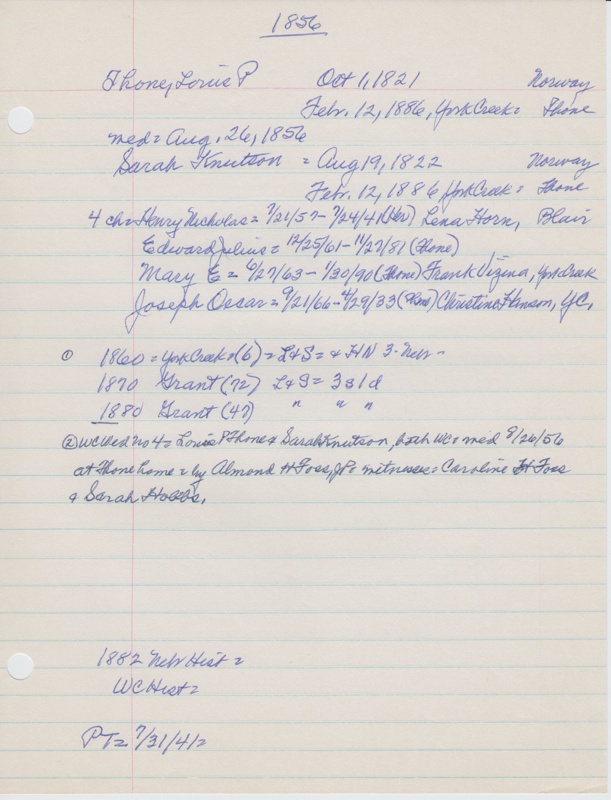 1856
Thone, Louis P Oct 11, 1821 Norway
Febr. 12, 1886, York Creek = Thone
med = Aug. 26, 1856
Sarah Knutson = Aug 19, 1822 Norway
Febr. 12, 1886 York Creek = Thone
4 ch = Henry Nicholas = 7/21/57 - 7/24/41 Lena Horn, Blair
Edward Julius = 12/25/61 - 11/27/81 (Thone)
Mary E = 6/27/63 - 1/30/90 (Thone) Frank Vizina, York Creek
Joseph Oscar = 9/21/66 - 4/29/33 (Thone) Christine Hanson, YC,
① 1860 = York Creek = (6) = L & S = & HN 3 - Nebr -
1870 Grant (72) L & S = 3 s 1 d
1880 Grant (47) " " "
② WC Wed no 4 = Louis P Thone & Sarah Knutson, both WC = med 8/26/56
at Thone home = by Almond H Foss, JP = witnesses = Caroline H Foss
& Sarah Hobbs.
1882 Nebr Hist =
WC Hist =
PT = 7/31/41 =